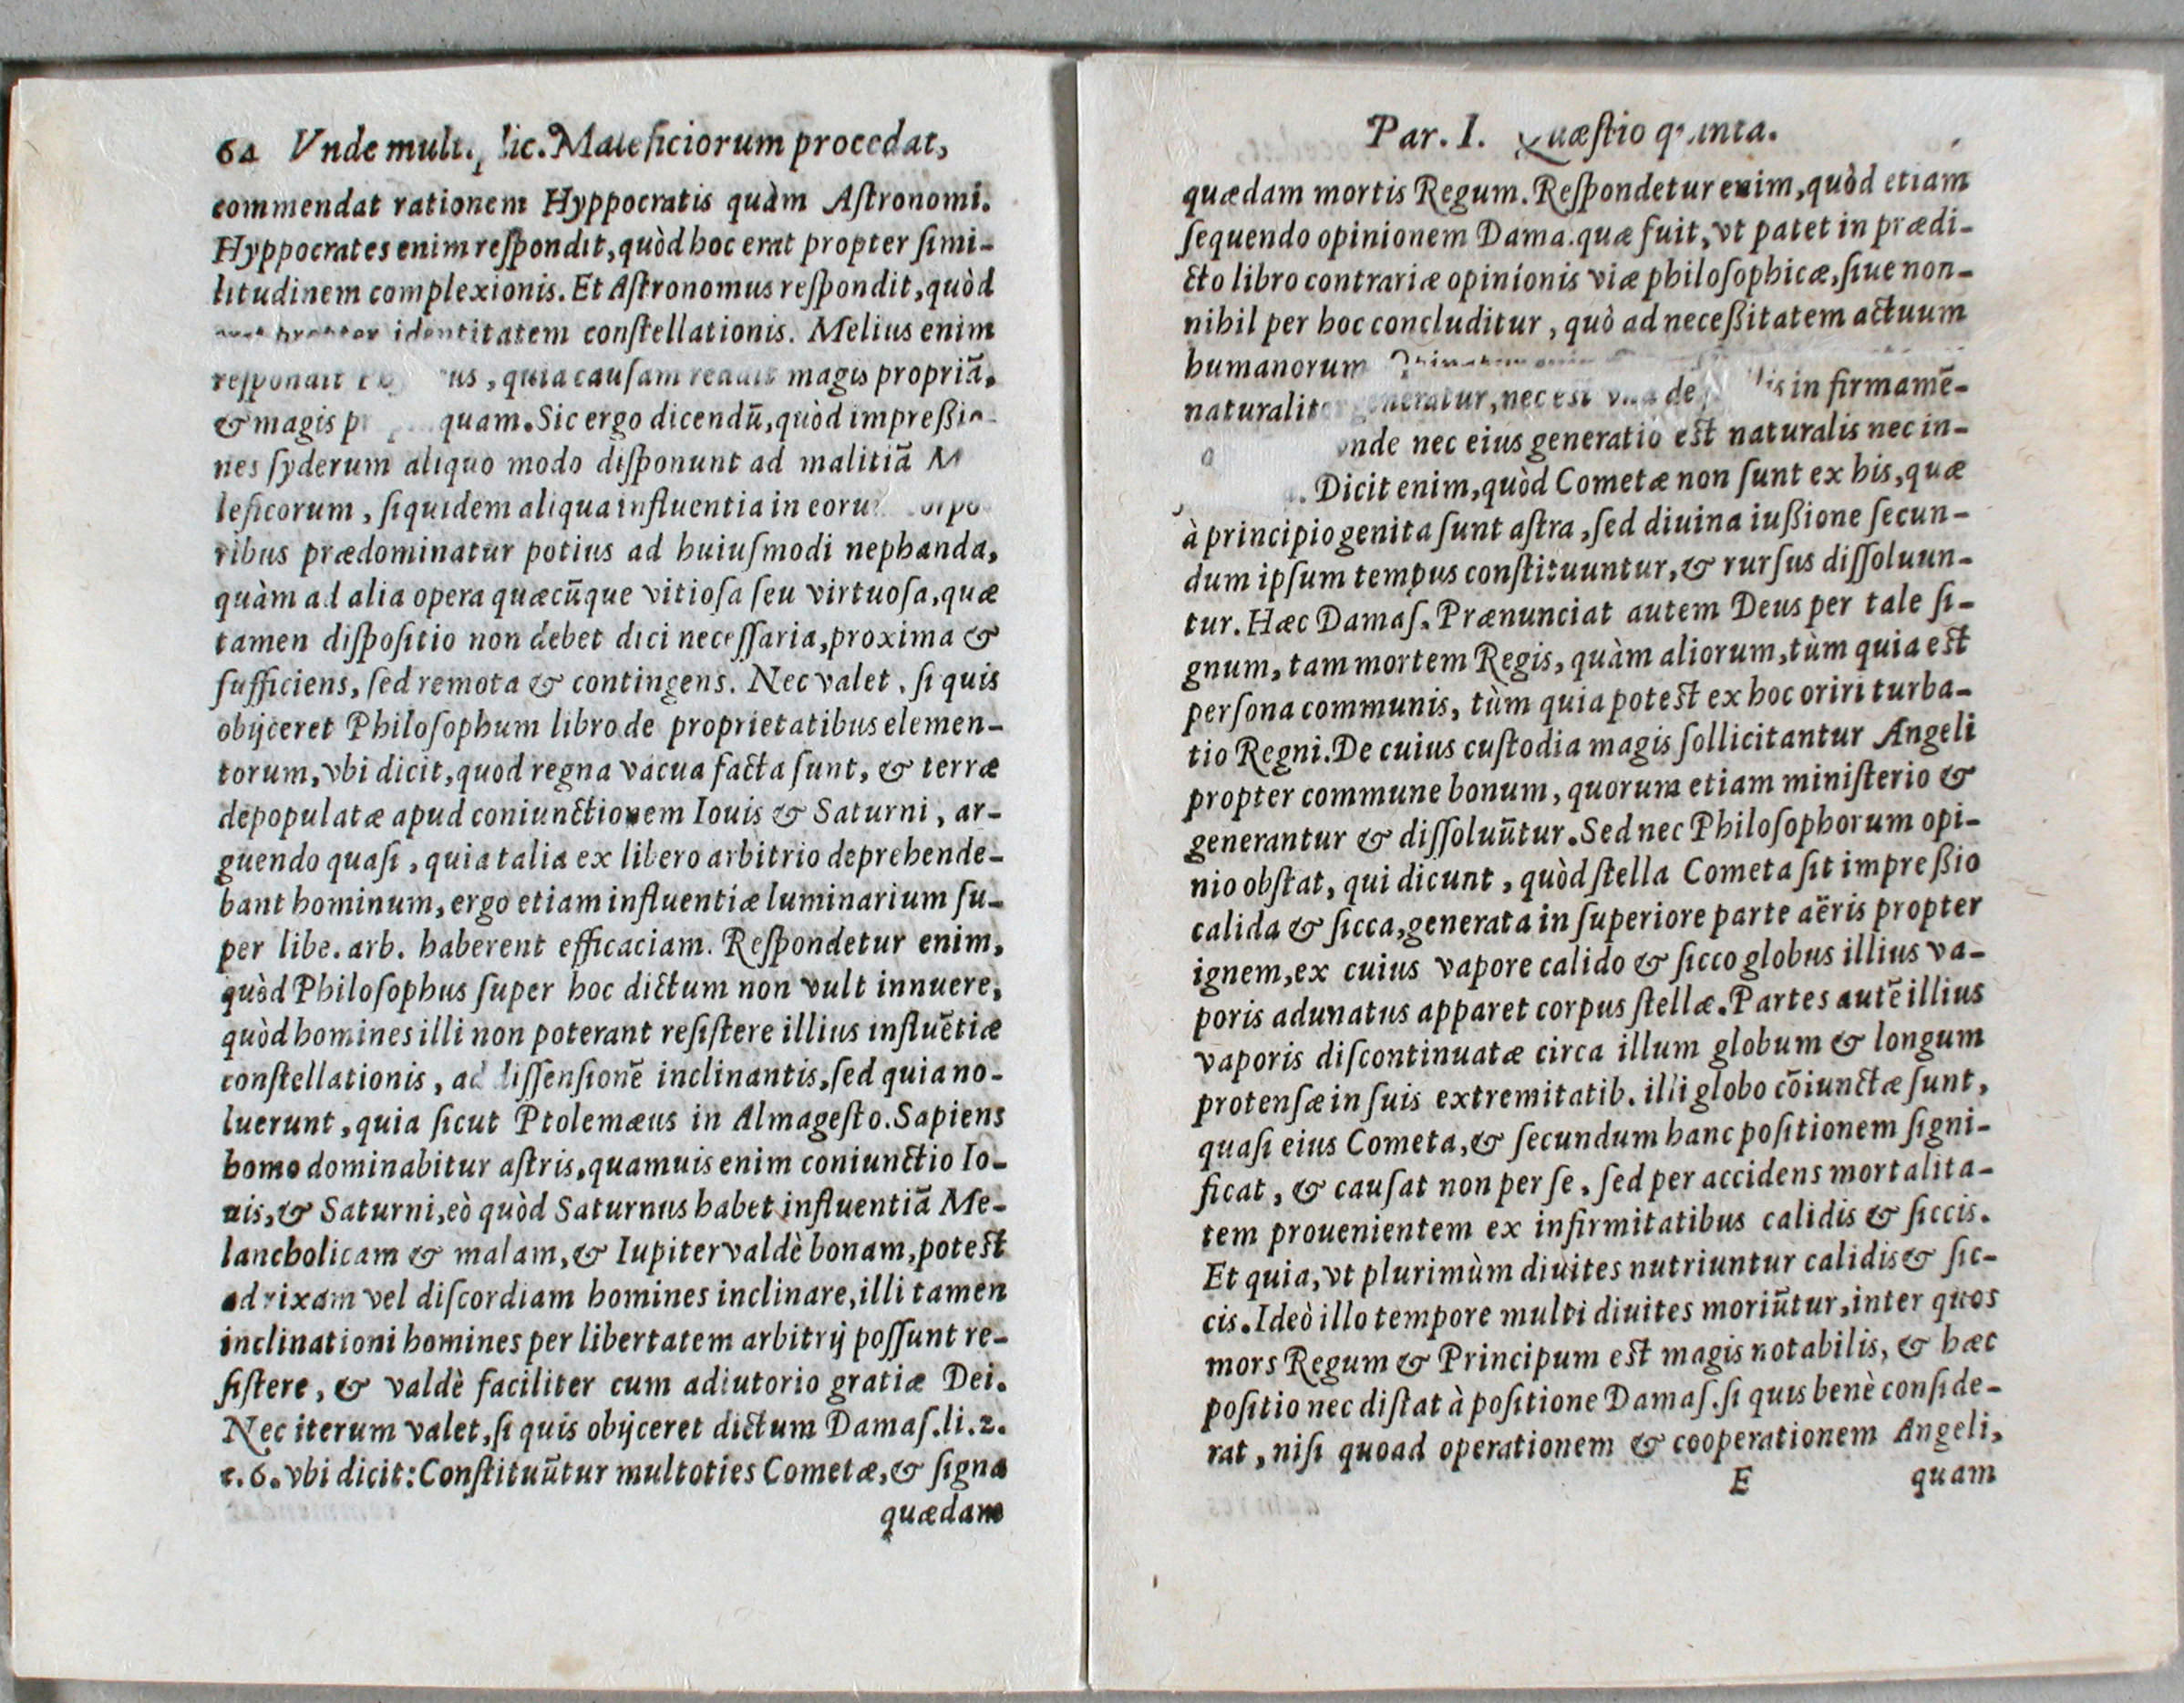 64 Vnde mult. lic. Maleficiorum procedat,
commendat rationem Hyppocratis quàm Aſtronomi.
Hyppocrates enim reſpondit, quòd hoc erat propter ſimi-
litudinem complexionis. Et Aſtronomus reſpondit, quòd
propter identitatem conſtellationis. Melius enim
reſpondit , quia cauſam reddit magis propriã,
& magis quam. Sic ergo dicendũ, quòd impreßio-
nes ſyderum aliquo modo diſponunt ad malitiã
leficorum, ſiquidem aliqua influentia in
ribus prædominatur potius ad huiuſmodi nephanda,
quàm ad alia opera quæcũque vitioſa ſeu virtuoſa, quæ
tamen diſpoſitio non debet dici neceſſaria, proxima &
ſufficiens, ſed remota & contingens. Nec valet, ſi quis
obijceret Philoſophum libro de proprietatibus elemen-
torum, vbi dicit, quod regna vacua facta ſunt, & terræ
depopulatæ apud coniunctionem Iouis & Saturni, ar-
guendo quaſi, quia talia ex libero arbitrio deprehende-
bant hominum, ergo etiam influentiæ luminarium ſu-
per libe. arb. haberent efficaciam. Reſpondetur enim,
quòd Philoſophus ſuper hoc dictum non vult innuere,
quòd homines illi non poterant reſiſtere illius influẽtiæ
conſtellationis, ad diſſenſionẽ inclinantis, ſed quia no-
luerunt, quia ſicut Ptolemæus in Almageſto. Sapiens
homo dominabitur aſtris, quamuis enim coniunctio Io-
uis, & Saturni, eò quòd Saturnus habet influentiã Me-
lancholicam & malam, & Iupiter valdè bonam, poteſt
ad rixam vel diſcordiam homines inclinare, illi tamen
inclinationi homines per libertatem arbitrij poſſunt re-
ſiſtere, & valdè faciliter cum adiutorio gratiæ Dei.
Nec iterum valet, ſi quis obijceret dictum Damaſ. li. 2.
c. 6. vbi dicit: Conſtituũtur multoties Cometæ, & ſigna
quædam
Par. I. Quæſtio quinta.
quædam mortis Regum. Reſpondetur enim, quòd etiam
ſequendo opinionem Dama. quæ fuit, vt patet in prædi-
cto libro contrariæ opinionis viæ philoſophicæ, ſiue non-
nihil per hoc concluditur, quò ad neceßitatem actuum
humanorum
naturaliter generatur, nec eſt vna de in firmamẽ-
vnde nec eius generatio eſt naturalis nec in-
. Dicit enim, quòd Cometæ non ſunt ex his, quæ
à principio genita ſunt aſtra, ſed diuina iußione ſecun-
dum ipſum tempus conſtituuntur, & rurſus diſſoluun-
tur. Hæc Damaſ. Prænunciat autem Deus per tale ſi-
gnum, tam mortem Regis, quàm aliorum, tùm quia eſt
perſona communis, tùm quia poteſt ex hoc oriri turba-
tio Regni. De cuius cuſtodia magis ſollicitantur Angeli
propter commune bonum, quorum etiam miniſterio &
generantur & diſſoluũtur. Sed nec Philoſophorum opi-
nio obſtat, qui dicunt, quòd ſtella Cometa ſit impreßio
calida & ſicca, generata in ſuperiore parte aëris propter
ignem, ex cuius vapore calido & ſicco globus illius va-
poris adunatus apparet corpus ſtellæ. Partes autẽ illius
vaporis diſcontinuatæ circa illum globum & longum
protenſæ in ſuis extremitatib. illi globo cõiunctæ ſunt,
quaſi eius Cometa, & ſecundum hanc poſitionem ſigni-
ficat, & cauſat non per ſe, ſed per accidens mortalita-
tem prouenientem ex infirmitatibus calidis & ſiccis.
Et quia, vt plurimùm diuites nutriuntur calidis & ſic-
cis. Ideò illo tempore multi diuites moriũtur, inter quos
mors Regum & Principum eſt magis notabilis, & hæc
poſitio nec diſtat à poſitione Damaſ. ſi quis benè conſide-
rat, niſi quoad operationem & cooperationem Angeli,
E quam